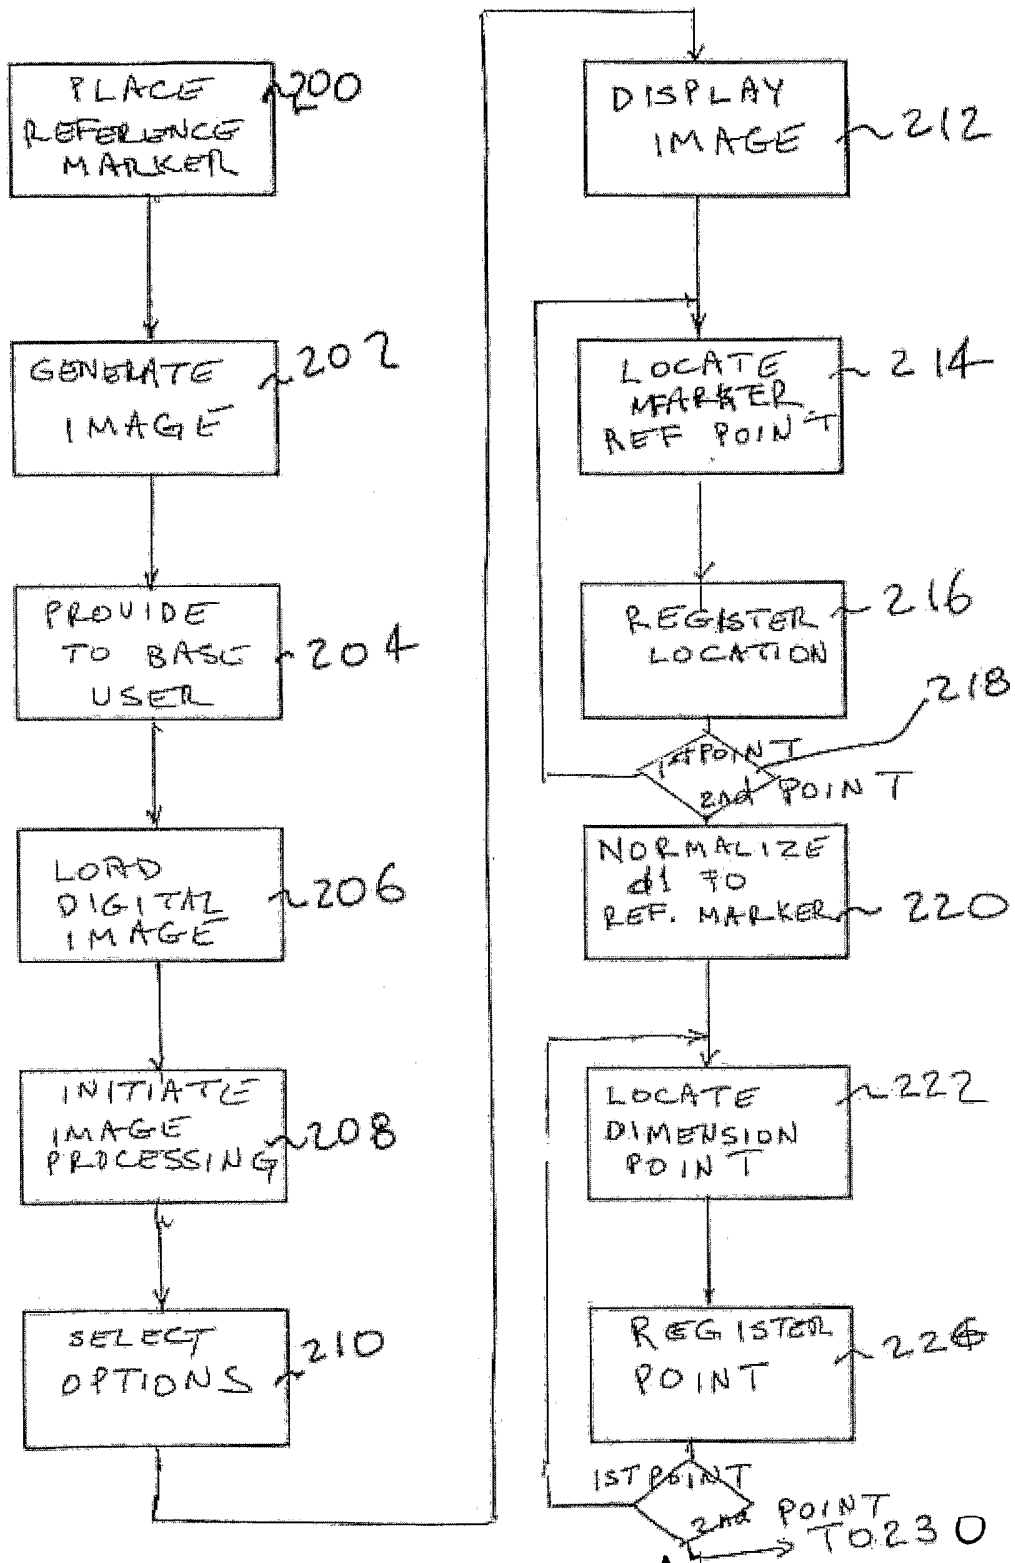 PLACE
REFERENCE
MARKER
200
GENERATE
IMAGE
202
PROVIDE
TO BASE
USER
204
LOAD
DIGITAL
IMAGE
206
INITIATE
IMAGE
PROCESSING
208
SELECT
OPTIONS
210
DISPLAY
IMAGE
212
LOCATE
MARKER
REF POINT
214
REGISTER
LOCATION
216
218
1st POINT
2nd POINT
NORMALIZE
d1 TO
REF. MARKER
220
LOCATE
DIMENSION
POINT
222
REGISTER
POINT
1ST POINT
2nd POINT
TO 230